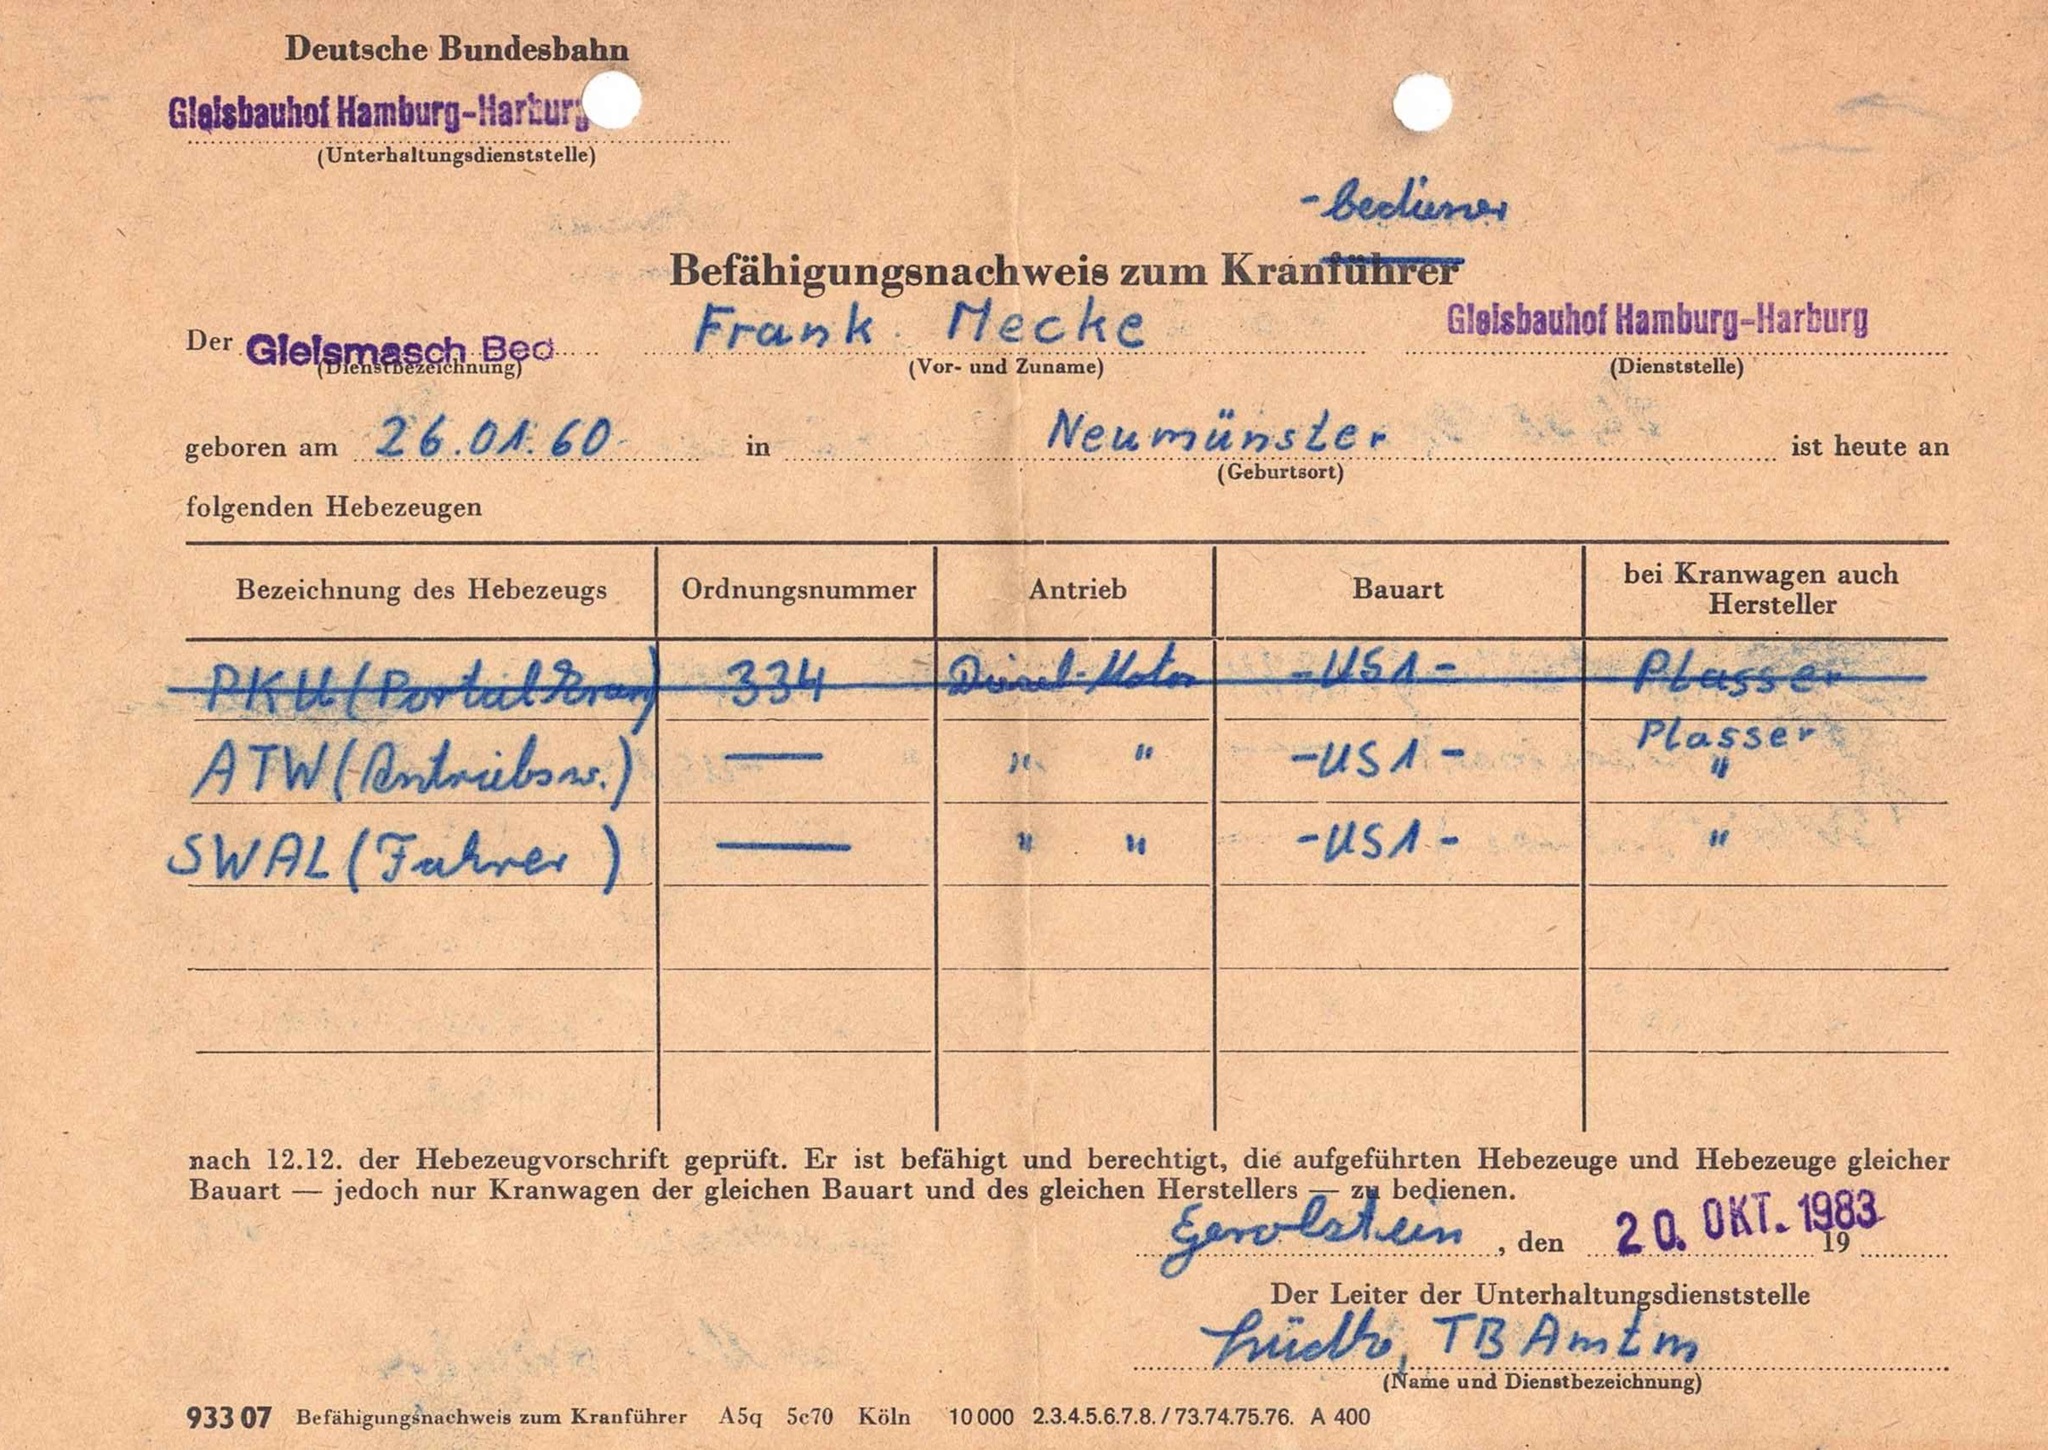 Deutsche Bundesbahn
Gleisbauhof Hamburg-Harburg
(Unterhaltungsdienststelle)
-bediener
Befähigungsnachweis zum Kranführer
Der Gleismasch Bed Frank Mecke Gleisbauhof Hamburg-Harburg
(Dienstbezeichnung) (Vor- und Zuname) (Dienststelle)
geboren am 26.01.60 in Neumünster ist heute an
(Geburtsort)
folgenden Hebezeugen
Bezeichnung des Hebezeugs Ordnungsnummer Antrieb Bauart bei Kranwagen auch
Hersteller
PKU (Portalkran) 334 Diesel-Motor -US1- Plasser
Plasser
ATW (Antriebsw.) — " " -US1- "
SWAL (Fahrer ) — " " -US1- "
nach 12.12. der Hebezeugvorschrift geprüft. Er ist befähigt und berechtigt, die aufgeführten Hebezeuge und Hebezeuge gleicher
Bauart — jedoch nur Kranwagen der gleichen Bauart und des gleichen Herstellers — zu bedienen.
Gerolstein, den 20. OKT. 1983 19
Der Leiter der Unterhaltungsdienststelle
Lüdtke, TBAmtm
(Name und Dienstbezeichnung)
933 07 Befähigungsnachweis zum Kranführer A5q 5c70 Köln 10 000 2.3.4.5.6.7.8. / 73.74.75.76. A 400